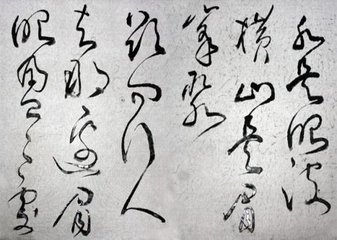 水是眼波
横山是眉
峯聚
欲问行人
去那边眉
眼盈盈处